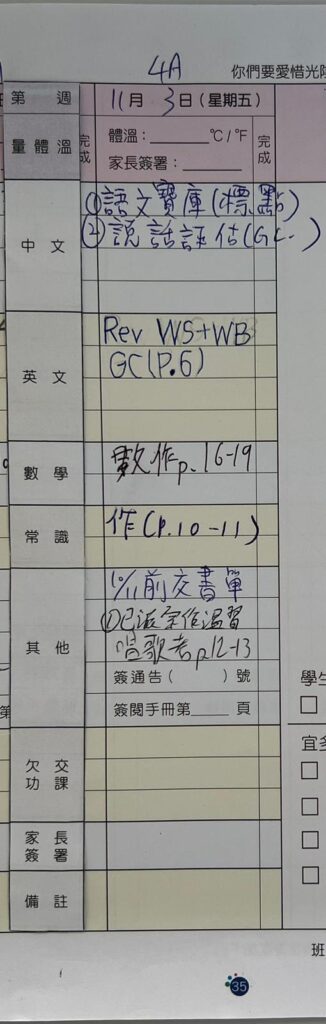 4A
你們要愛惜光
第 週
11月 3日(星期五)
量體溫
完成
體溫:______°C/°F
家長簽署:______
完成
中文
①語文寶庫(標點)
②説話評估(GC.)
英文
Rev WS+WB
GC(P.6)
數學
數作p.16-19
常識
作(P.10-11)
其他
10/11前交書單
唱歌考p12-13
簽通告( )號
簽閱手冊第___頁
學生
欠交功課
宜多
家長簽署
備註
班
35